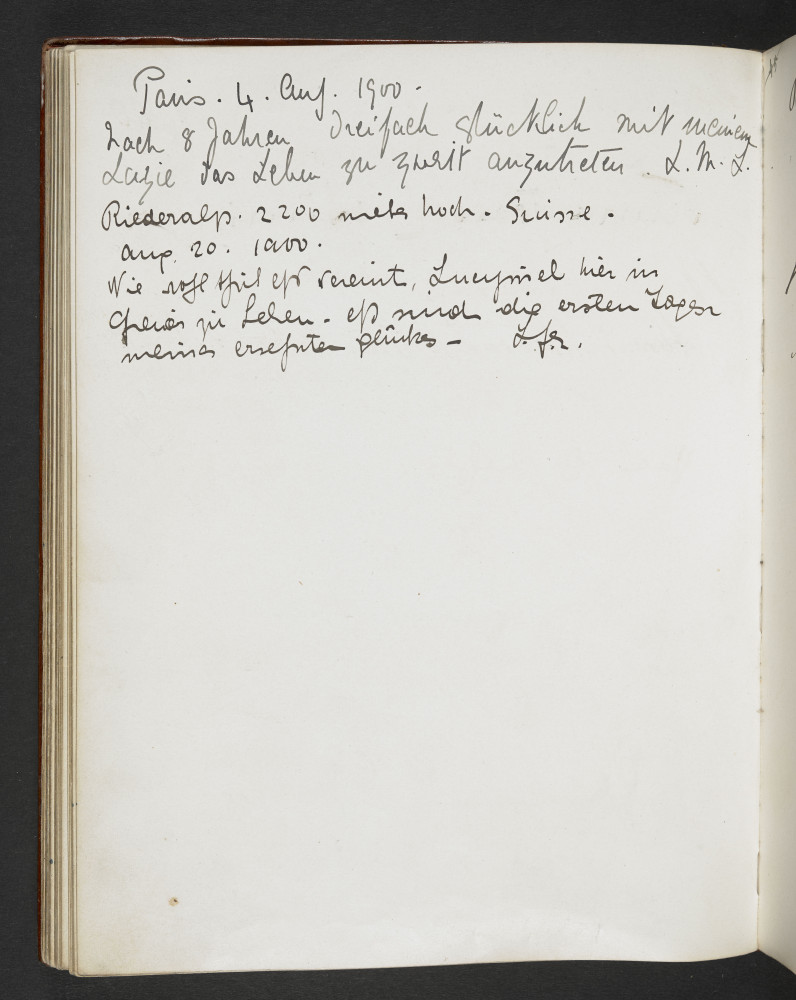 Paris. 4. Aug. 1900.
Nach 8 Jahren dreifach glücklich mit meinem
Lazie das Leben zu zweit anzutreten. L. M. L.
Riederalp. 2200 meter hoch. Suisse.
aug. 20. 1900.
Wie vereint, hier in
zu Leben. sind die ersten Tagen
meines ersehnten glückes